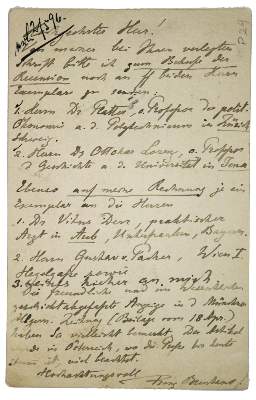 Geehrter Herr!
von meiner bei Ihnen verlegten
Schrift bitte ich zum Behufe der
Recension noch an ff beiden Herrn
Exemplar zu senden:
1. Herrn Dr Platter, o. Professor der polit.
Ökonomie a. d. Polytechnicum in Zürich
Schweiz.
2. Herrn Dr Ottokar Lorenz, o. Professor
d Geschichte a. d. Universität in Jena
Ebenso auf meine Rechnung je ein
Exemplar an die Herren
1. Dr Vitus Derr, praktischer
Arzt in Aub, Unterfranken, Bayern.
2. Herrn Gustav v. Pacher, Wien I
sowie
3. hieher an mich
Die freundlich und im Wesentlichen
Anzeige in d Münchner
Allgem. Zeitung (Beilage vom 18 Apr.)
haben Sie vielleicht bemerkt. Der Artikel
in Österreich, wo die Presse bis heute
ist, viel beachtet.
Hochachtungsvoll
Franz